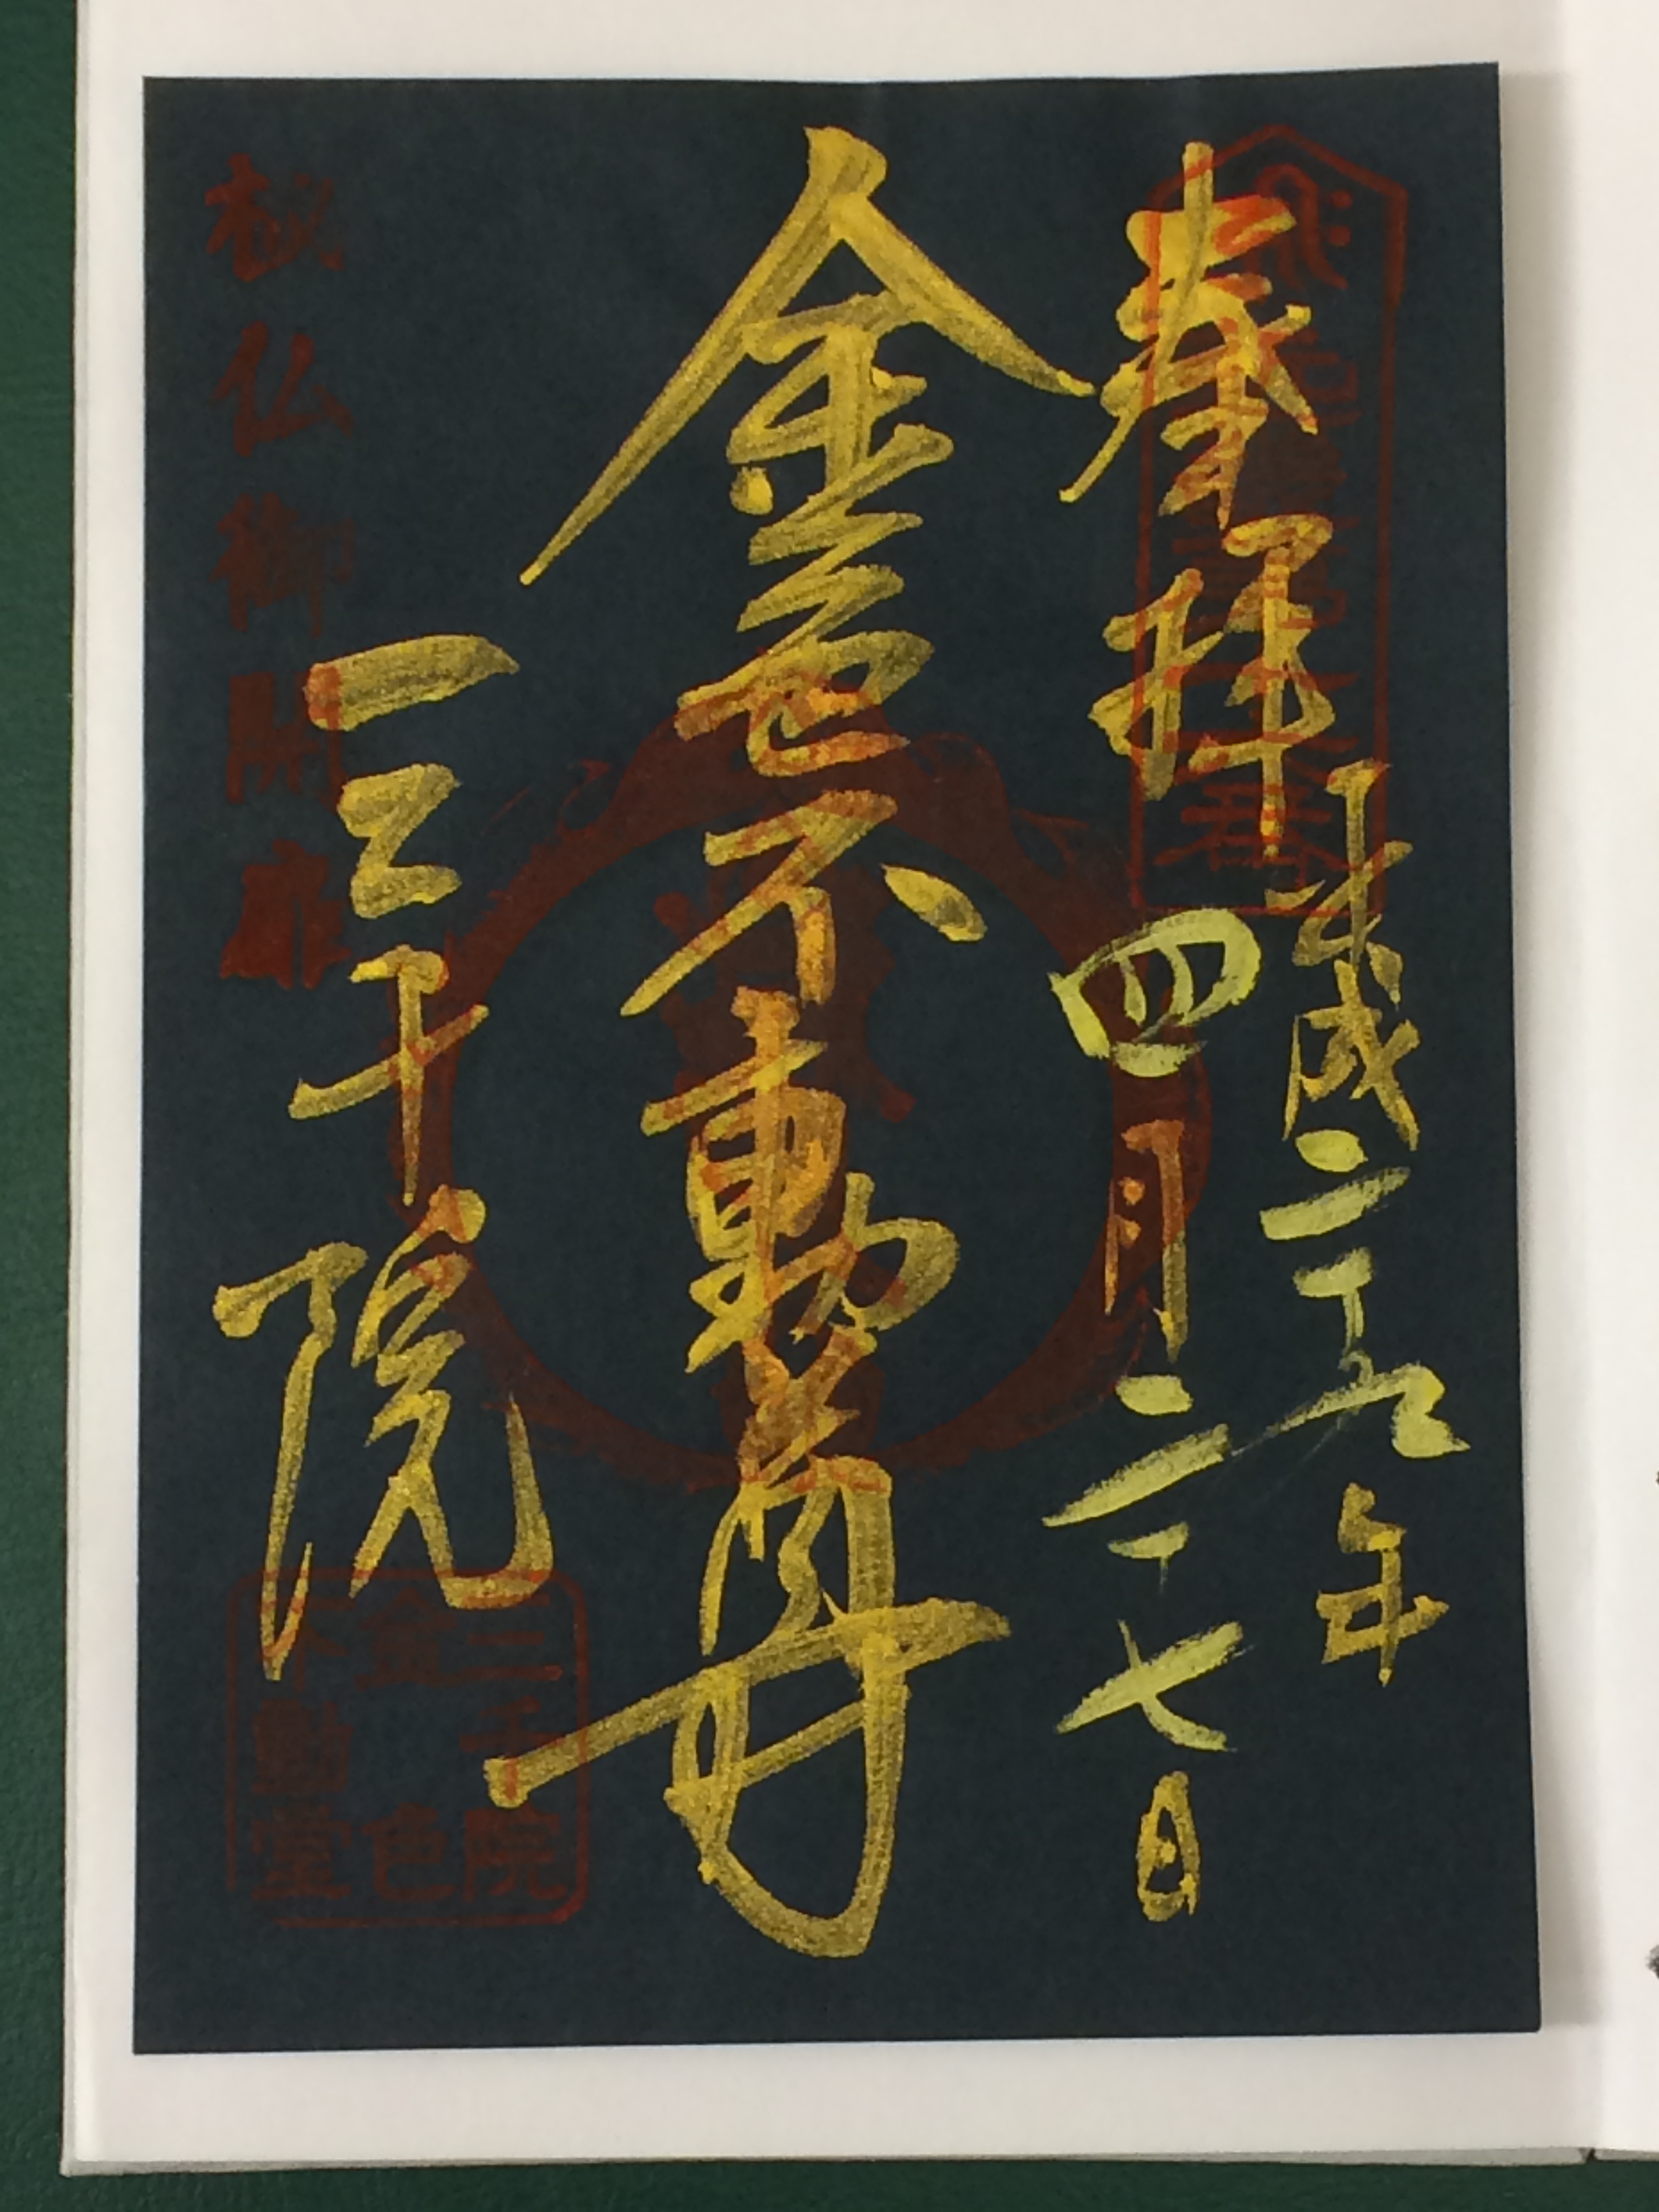 奉拝
平成二十九年
四月二十七日
金色不動尊
三千院
秘仏御開扉
三千院
金色
不動堂